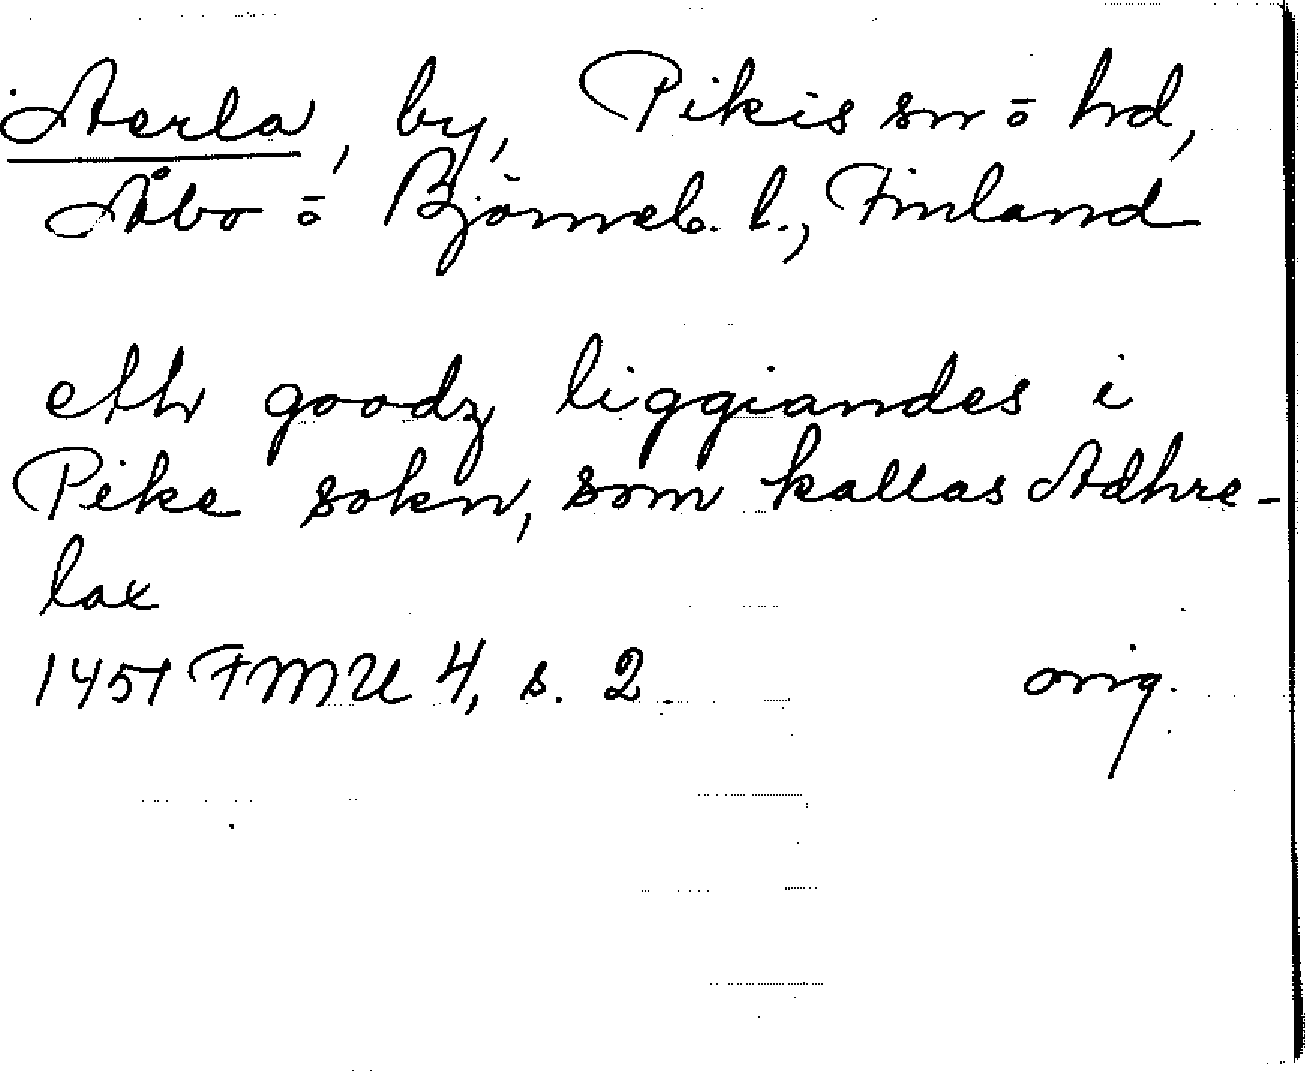 Aerla, by, Pikis sn o hd,
Åbo o Björneb. l., Finland
eth goodz liggiandes i
Pike sokn, som kallas Adhre-
lax
1451 FMU 4, s. 2 orig.